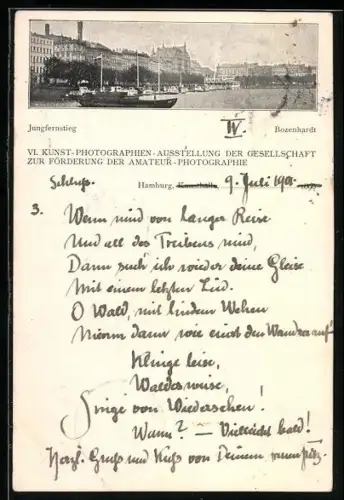 Jungfernstieg
IV.
Bozenhardt
VI. KUNST-PHOTOGRAPHIEN-AUSSTELLUNG DER GESELLSCHAFT
ZUR FÖRDERUNG DER AMATEUR-PHOTOGRAPHIE
Schluß.
Hamburg, Kunsthalle, 9. Juli 190
3. Wenn müd von langer Reise
Und all des Treibens müd,
Dann such' ich wieder deine Gleise
Mit einem letzten Lied.
O Wald, mit lindem Wehen
Nimm dann wie einst den Wandrer auf!
Klinge leise,
Waldesweise,
Singe von Wiedersehen!
Wann? — Vielleicht bald!
Herzl. Gruß und Kuß von Deinem